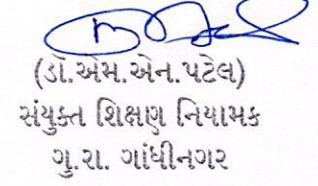 (ડૉ.એમ.એન.પટેલ)
સંયુક્ત શિક્ષણ નિયામક
ગુ.રા. ગાંધીનગર